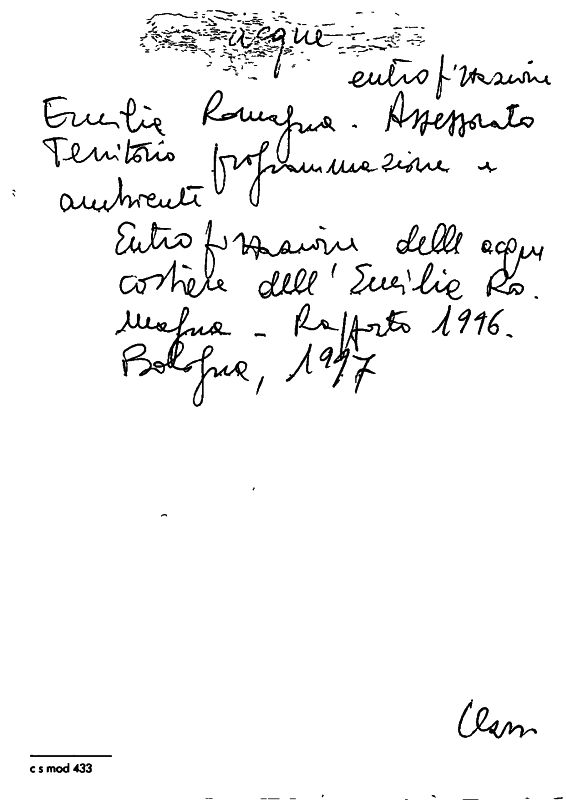 acque
eutrofizzazione
Emilia Romagna. Assessorato
Territorio programmazione e
ambiente
Eutrofizzazione delle acque
costiere dell'Emilia Ro.
magna - Rapporto 1996.
Bologna, 1997
c s mod 433